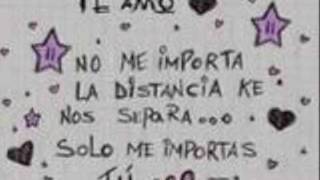 TE AMO
NO ME IMPORTA
LA DISTANCIA KE
NOS SEPARA...
SOLO ME IMPORTAS
TÚ ...